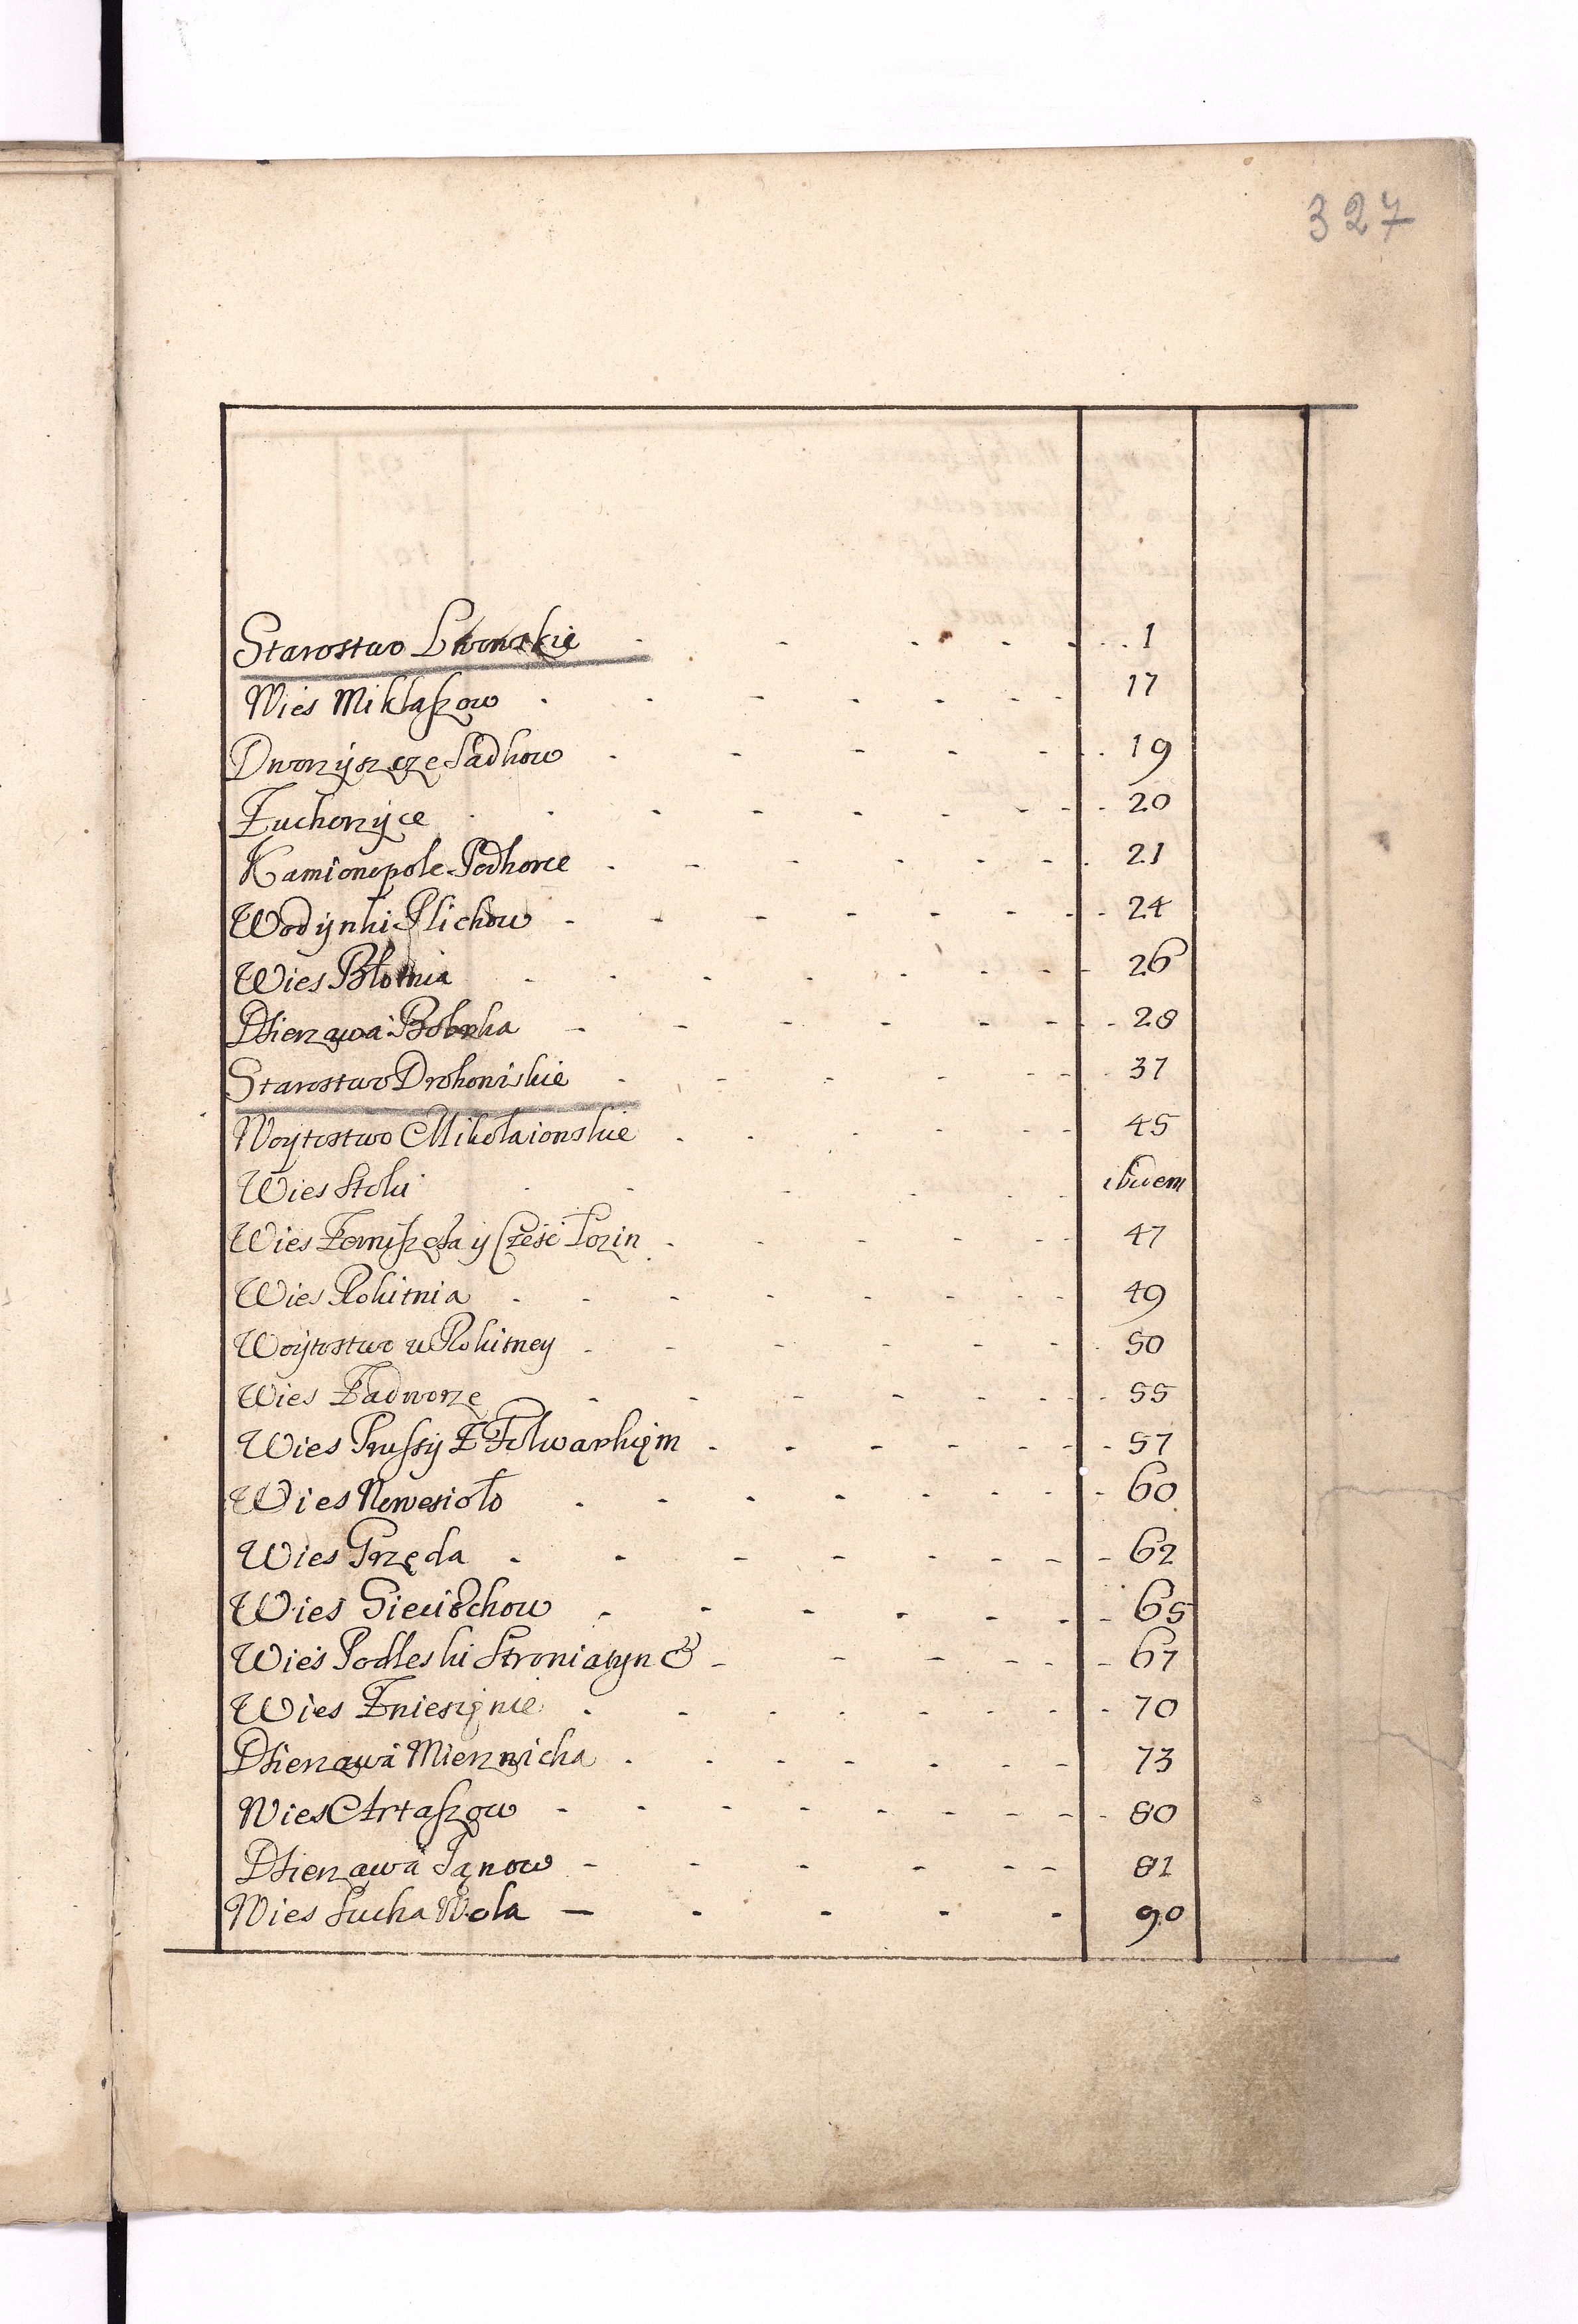 327
Starostwo Lwowskie - - - - - - 1
Wies Miklaszow - - - - - - - 17
Dworzyszcze Sadkow - - - - - - 19
Zuchorzyce - - - - - - - 20
Kamionopole Podhorce - - - - - - - 21
Wodynki Plichow - - - - - - - - 24
Wies Błotnia - - - - - - - 26
Dzierzawa Bobrka - - - - - - - 28
Starostwo Drohowiskie - - - - - - 37
Woytostwo Mikołaiowskie - - - - - - 45
Wies Stolu - - - - - ibidem
Wies Zorniszcza y Cześć Lozin - - - - - - 47
Wies Rokitnia - - - - - - - - 49
Woytostwo w Rokitney - - - - - - 50
Wies Zadworze - - - - - - 55
Wies Prussy Z Folwarkiem - - - - - - - 57
Wies Nowesioło - - - - - - - - 60
Wies Grzęda - - - - - - - - 62
Wies Sieciechow - - - - - - - 65
Wies Podleski Stroniatyn & - - - - - - 67
Wies Zniesienie - - - - - - - - 70
Dzierzawa Mierzwicka - - - - - - - 73
Wies Artaszow - - - - - - - - - 80
Dzierzawa Janow - - - - - - 81
Wies Sucha Wola - - - - - 90